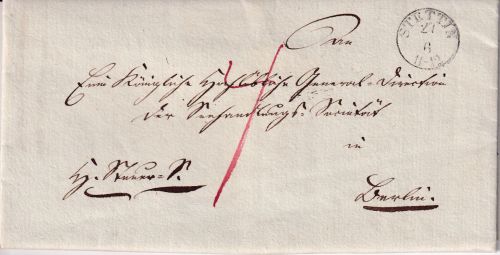 An
STETTIN
27
6
Eine Königliche Hochlöbliche General-Direction
der Seehandlungs-Societät
in
Berlin.